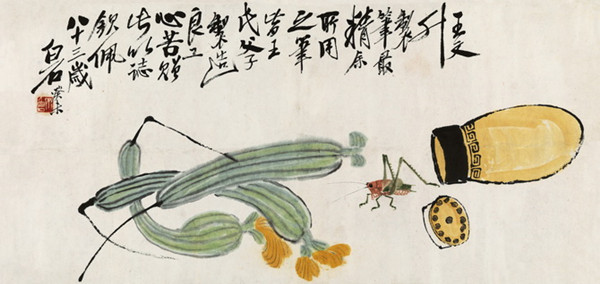 王文
升
製筆最
精余
所用
之筆
皆王
氏父子
製造
良工
心苦贈
此以誌
欽佩
八十三歲
白石
癸未